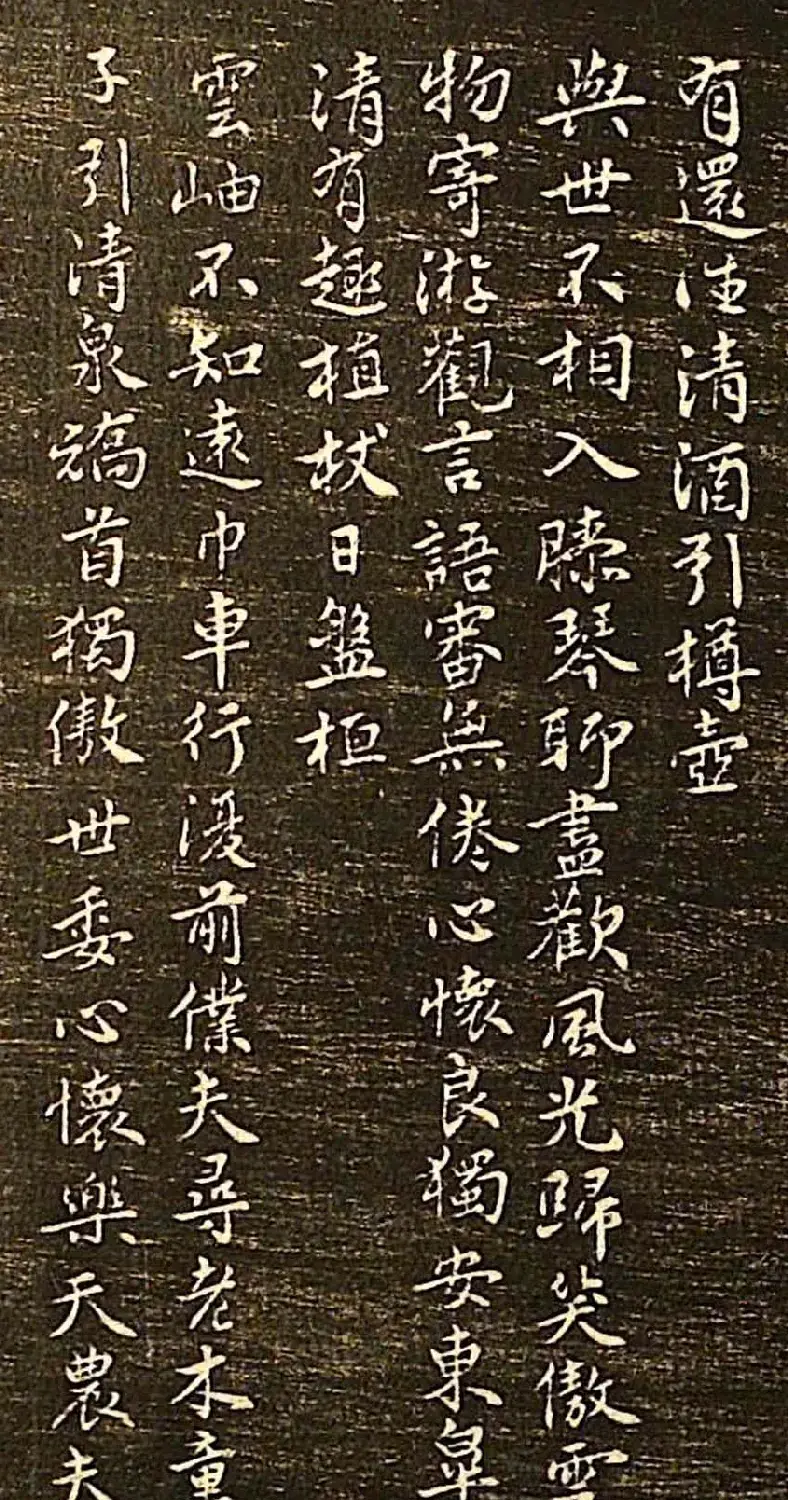 有還往清酒引樽壺
與世不相入膝琴聊盡歡風光歸笑傲雲
物寄游觀言語審無倦心懷良獨安東皋
清有趣植杖日盤桓
雲岫不知遠巾車行復前僕夫尋老木童
子引清泉矯首獨傲世委心懷樂天農夫